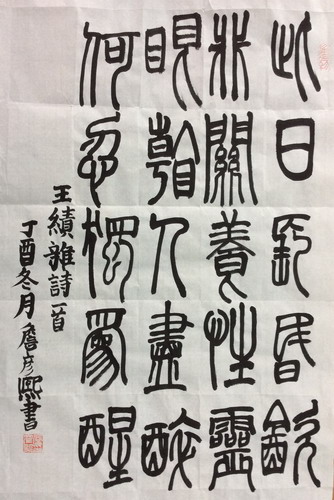 此日長昏飲
非關養性靈
眼看人盡醉
何忍獨為醒
王績雜詩一首
丁酉冬月詹彦熙書